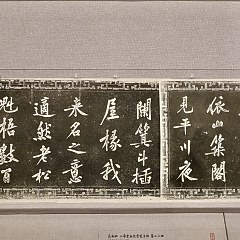 依山築閣
見平川夜
闌箕斗插
屋椽我
来名之意
適然老松
魁梧數百